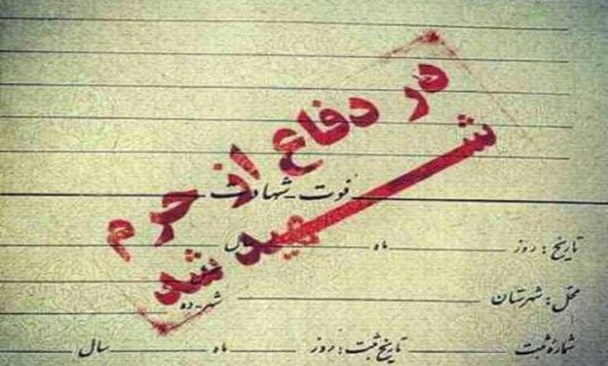 در دفاع از حرم
شهید شد
فوت - شهادت
تاریخ : روز ماه سال
محل : شهرستان شهر - ده
شماره ثبت تاریخ ثبت : روز ماه سال